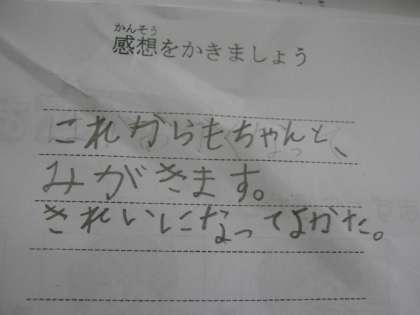 かんそう
感想をかきましょう
これからもちゃんと、
みがきます。
きれいになってよかた。